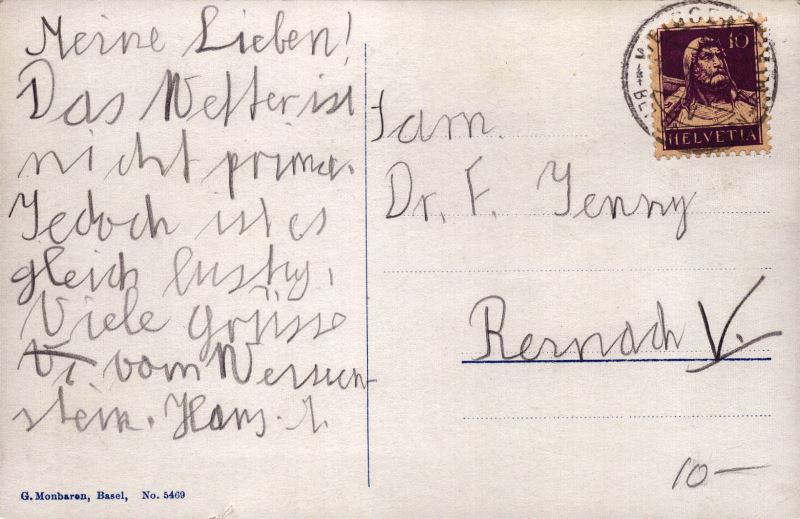 Meine Lieben!
Das Wetter ist
nicht prima.
Jedoch ist es
gleich lustig.
Viele Grüsse
vom Wersen-
stein. Hans. J.
Fam.
Dr. F. Jenny
Rernach V.
10
HELVETIA
10 —
G. Monbaron, Basel, No. 5469